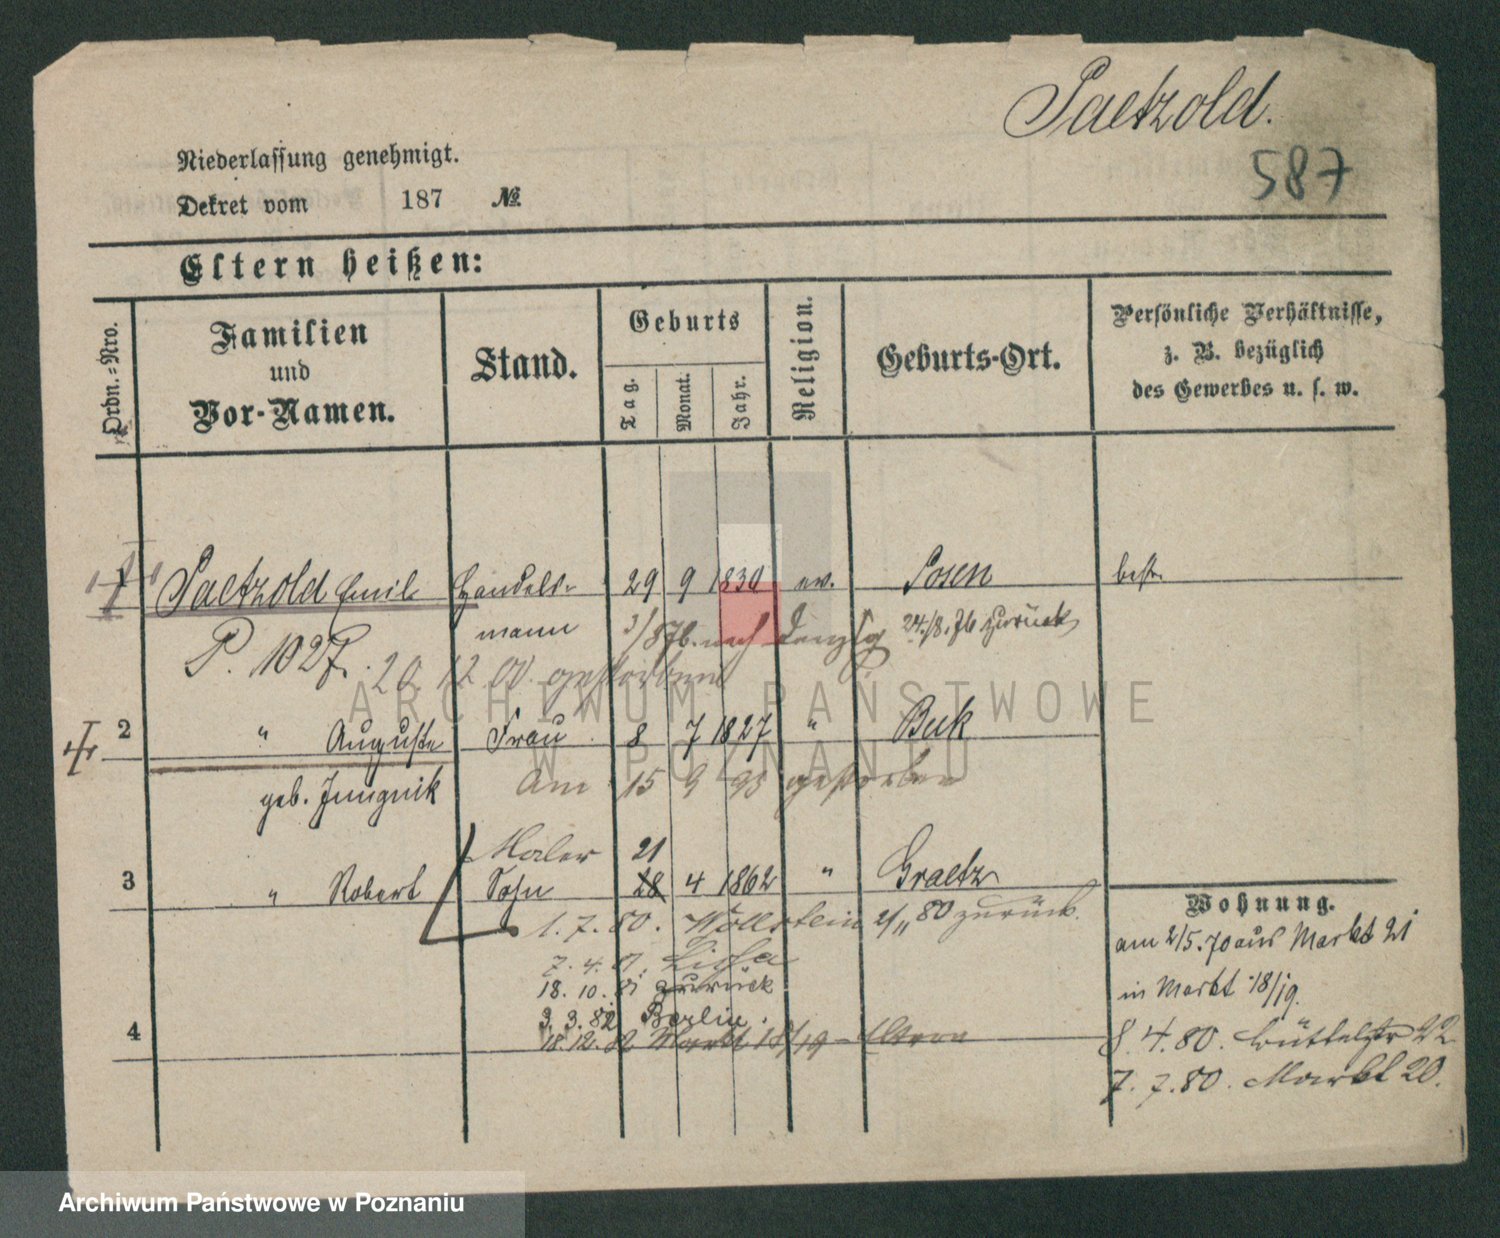 Paetzold.
587
Niederlassung genehmigt.
Dekret vom 187 No.
Eltern heißen:
Ordn.=Nro.
Familien und Vor-Namen.
Stand.
Geburts
Tag.
Monat.
Jahr.
Religion.
Geburts-Ort.
Persönliche Verhältnisse,
z. B. bezüglich
des Gewerbes u. s. w.
Paetzold Emil Handels- 29 9 1830 ev. Posen best.
mann 3/8 76. nach Danzig 24./8. 76 zurück
P. 1027. 20 12 00 gestorben
2 " Auguste Frau 8 7 1827 " Buk
geb. Jungnik Am 15 9 95 gestorben
Maler 21
3 " Robert Sohn 28 4 1862 " Graetz
1. 7. 80. Wollstein 2/11 80 zurück.
7. 4. 81. Lissa
18. 10. 81 zurück
3. 3. 82 Berlin.
4 18.12.82 Markt 18/19 Eltern
Wohnung.
am 2/5. 70 aus Markt 21
in Markt 18/19.
8. 4. 80. Büttelstr 22
7. 7. 80. Markt 20.
ARCHIWUM PAŃSTWOWE
W POZNANIU
Archiwum Państwowe w Poznaniu